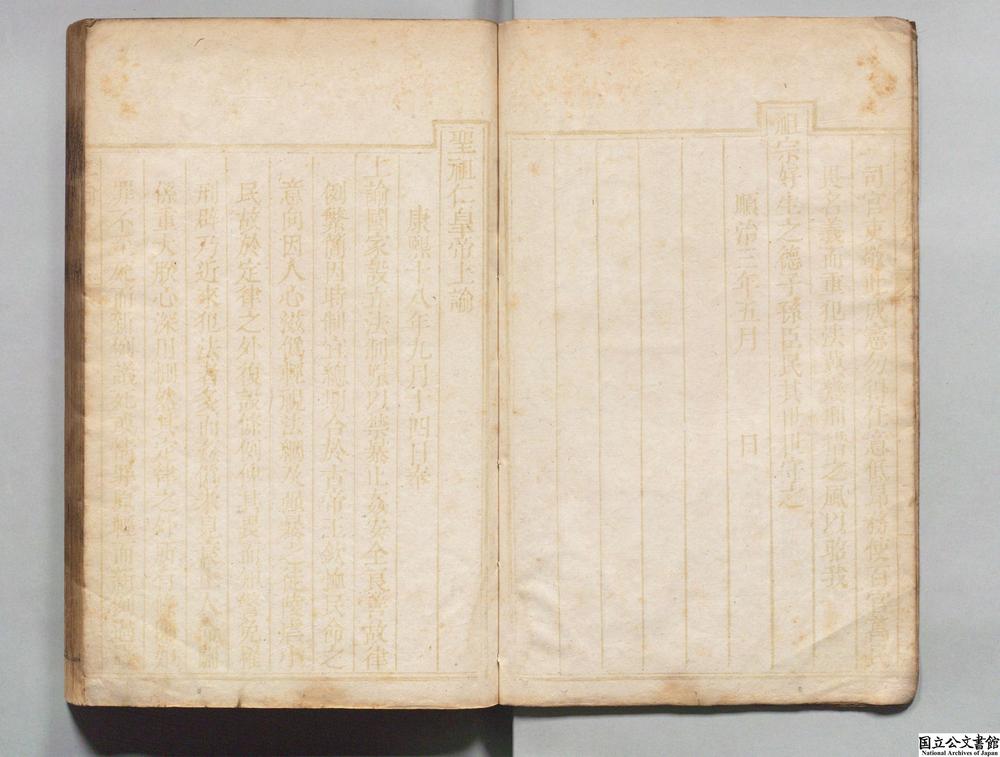 司官吏敬此成憲勿得任意低昂務使百官萬民
畏名義而重犯法冀幾刑措之風以昭我
祖宗好生之德子孫臣民其世世守之
順治三年五月 日
聖祖仁皇帝上諭
康熙十八年九月十四日奉
上諭國家設立法制原以禁暴止姦安全良善故律
例繁簡因時制宜總期合於古帝王欽恤民命之
意向因人心滋僞輕視法網及强暴之徒陵虐小
民故於定律之外復設條例俾其畏而知警免罹
刑辟乃近來犯法者多而姦宄未見衰止人命關
係重大朕心深用惻然其定律之外所有條例如
罪不至死而新例議死或情罪原輕而新例過
国立公文書館
National Archives of Japan